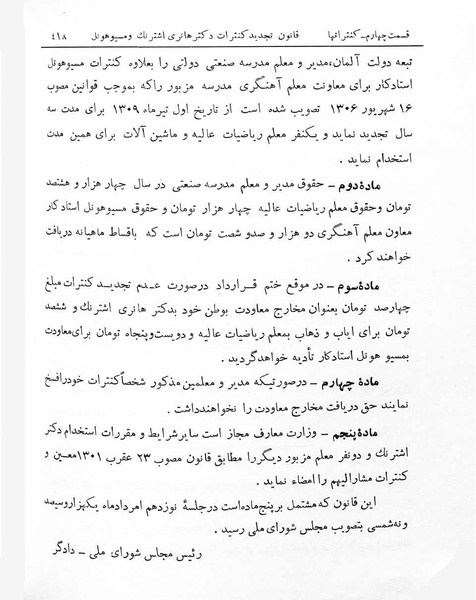 قسمت چهارم ـ كنتراتها قانون تجدید كنترات دكتر هانری اشترنك و مسیو هونل ٤١٨
تبعه دولت آلمان، مدیر و معلم مدرسه صنعتی دولتی را بعلاوه كنترات مسیو هونل
استادكار برای معاونت معلم آهنگری مدرسه مزبور راكه بموجب قوانین مصوب
١٦ شهریور ١٣٠٦ تصویب شده است از تاریخ اول تیرماه ١٣٠٩ برای مدت سه
سال تجدید نماید و یكنفر معلم ریاضیات عالیه و ماشین آلات برای همین مدت
استخدام نماید .
مادهٔ دوم – حقوق مدیر و معلم مدرسه صنعتی در سال چهار هزار و هشتصد
تومان وحقوق معلم ریاضیات عالیه چهار هزار تومان و حقوق مسیو هونل استادكار
معاون معلم آهنگری دو هزار و صدو شصت تومان است كه باقساط ماهیانه دریافت
خواهند كرد .
مادهٔ سوم – در موقع ختم قرارداد درصورت عدم تجدید كنترات مبلغ
چهارصد تومان بعنوان مخارج معاودت بوطن خود بدكتر هانری اشترنك و ششصد
تومان برای ایاب و ذهاب بمعلم ریاضیات عالیه و دویست وپنجاه تومان برای معاودت
بمسیو هونل استادكار تأدیه خواهدگردید .
مادهٔ چهارم – درصورتیكه مدیر و معلمین مذكور شخصاً كنترات خودرافسخ
نمایند حق دریافت مخارج معاودت را نخواهندداشت .
مادهٔ پنجم – وزارت معارف مجاز است سایر شرایط و مقررات استخدام دكتر
اشترنك و دونفر معلم مزبور دیگررا مطابق قانون مصوب ٢٣ عقرب ١٣٠١ معین و
كنترات مشارالیهم را امضاء نماید .
این قانون كه مشتمل برپنج ماده است درجلسهٔ نوزدهم امردادماه یكهزاروسیصد
ونه شمسی بتصویب مجلس شورای ملی رسید .
رئیس مجلس شورای ملی – دادگر